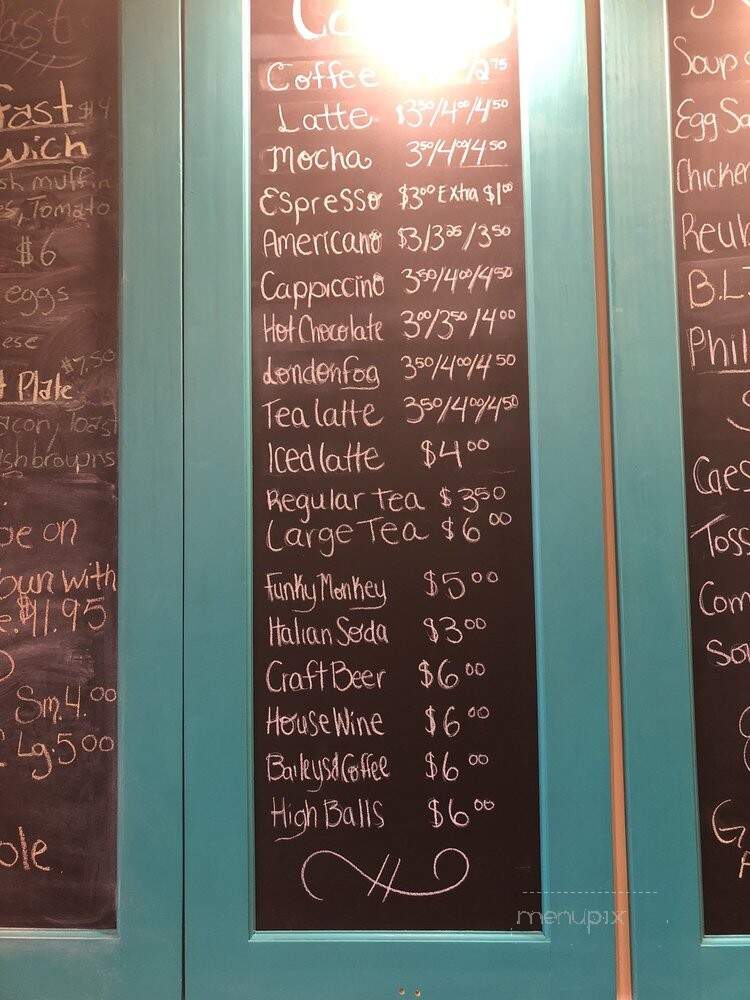 fast $14
wich
sh muffin
es, Tomato
$6
eggs
ese
$7.50
t Plate
acon, Toast
shbrowns
be on
bun with
e. $1.95
Sm. 4.00
Lg. 5 00
ole
Coffee /2 75
Latte $3 50/4 00/4 50
Mocha 3 50/4 00/4 50
Espresso $3 00 Extra $1 00
Americano $3/3 25/3 50
Cappiccino 3 50/4 00/4 50
Hot Chocolate 3 00/3 50/4 00
Londonfog 3 50/4 00/4 50
Tea latte 3 50/4 00/4 50
Iced latte $4 00
Regular Tea $3 50
Large Tea $6 00
Funky Monkey $5 00
Italian Soda $3 00
Craft Beer $6 00
House Wine $6 00
Baileys & Coffee $6 00
High Balls $6 00
Soup
Egg Sa
Chicken
Reub
B.L.
Phil
Caes
Toss
Com
menupix